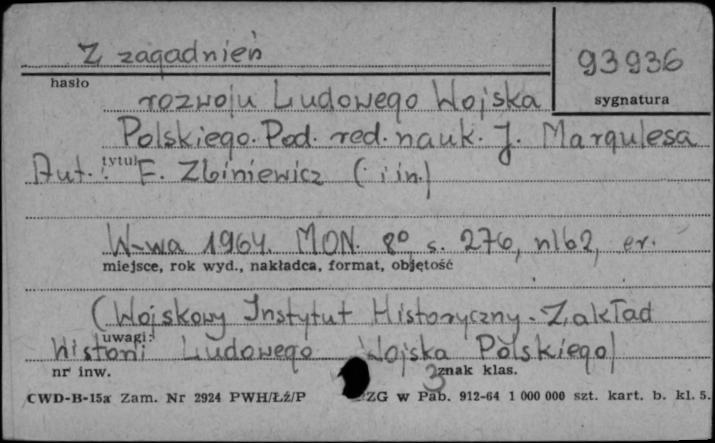 Z zagadnień
93936
hasło
sygnatura
rozwoju Ludowego Wojska
Polskiego. Pod. red. nauk. J. Margulesa
tytuł
Aut.: F. Zbiniewicz (i in.)
W-wa 1964. MON. 8° s. 276, nlb2, er.
miejsce, rok wyd., nakładca, format, objętość
(Wojskowy Instytut Historyczny - Zakład
uwagi:
historii Ludowego Wojska Polskiego)
nr inw.
znak klas.
3
CWD-B-15a Zam. Nr 2924 PWH/Łź/P ZG w Pab. 912-64 1 000 000 szt. kart. b. kl. 5.